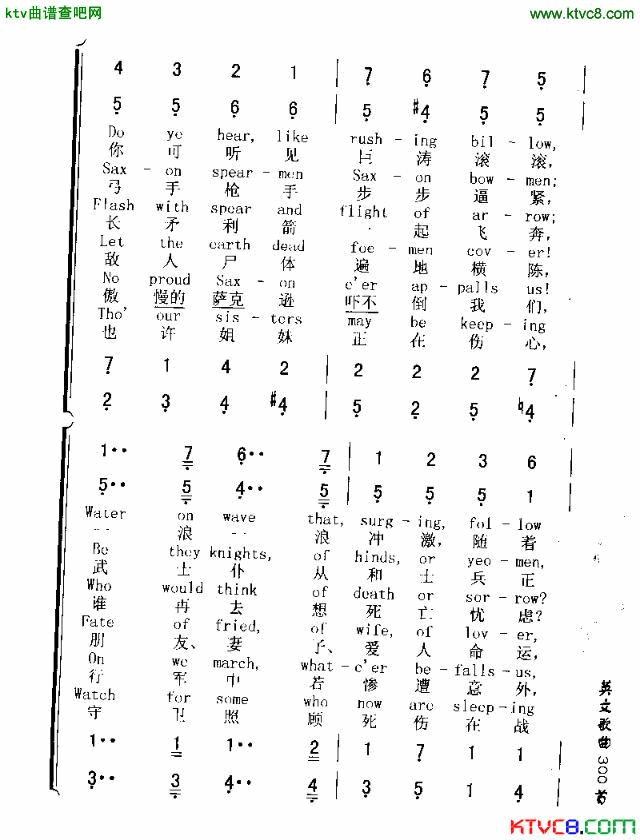 ktv曲谱查吧网
www.ktvc8.com
4 3 2 1 | 7 6 7 5
5 5 6 6 | 5 #4 5 5
Do ye hear, like rush - ing bil - low,
你 可 听 见 巨 涛 滚 滚,
Sax - on spear - men Sax - on bow - men;
弓 手 枪 手 步 步 逼 紧,
Flash with spear and flight of ar - row;
长 矛 利 箭 起 飞 奔,
Let the earth dead foe - men cov - er!
敌 人 尸 体 遍 地 横 陈,
No proud Sax - on e'er ap - palls us!
傲 慢的 萨克 逊 吓不 倒 我 们,
Tho' our sis - ters may be keep - ing
也 许 姐 妹 正 在 伤 心,
7 1 4 2 | 2 2 2 7
2 3 4 #4 | 5 2 5 ♮4
1·· 7 6·· 7 | 1 2 3 6
5·· 5 4·· 5 | 5 5 5 1
Water on wave that, surg - ing, fol - low
-- 浪 -- 浪 冲 激, 随 着
Be they knights, of hinds, or yeo - men,
武 士 仆 从 和 士 兵 正
Who would think of death or sor - row?
谁 再 去 想 死 亡 忧 虑?
Fate of fried, of wife, of lov - er,
朋 友、 妻 子、 爱 人 命 运,
On we march, what - e'er be - falls - us,
行 军 中 若 惨 遭 意 外,
Watch for some who now are sleep - ing
守 卫 照 顾 死 伤 在 战
1·· 1 1·· 2 | 1 7 1 1
3·· 3 4·· 4 | 3 5 1 4
英文歌曲 300 首
KTVC8.COM